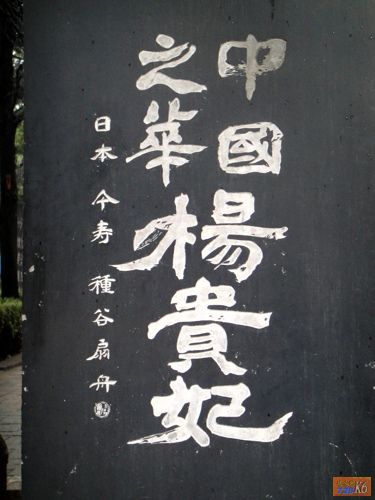 中國
之華
楊貴妃
日本 仐寿 種谷扇舟
K6